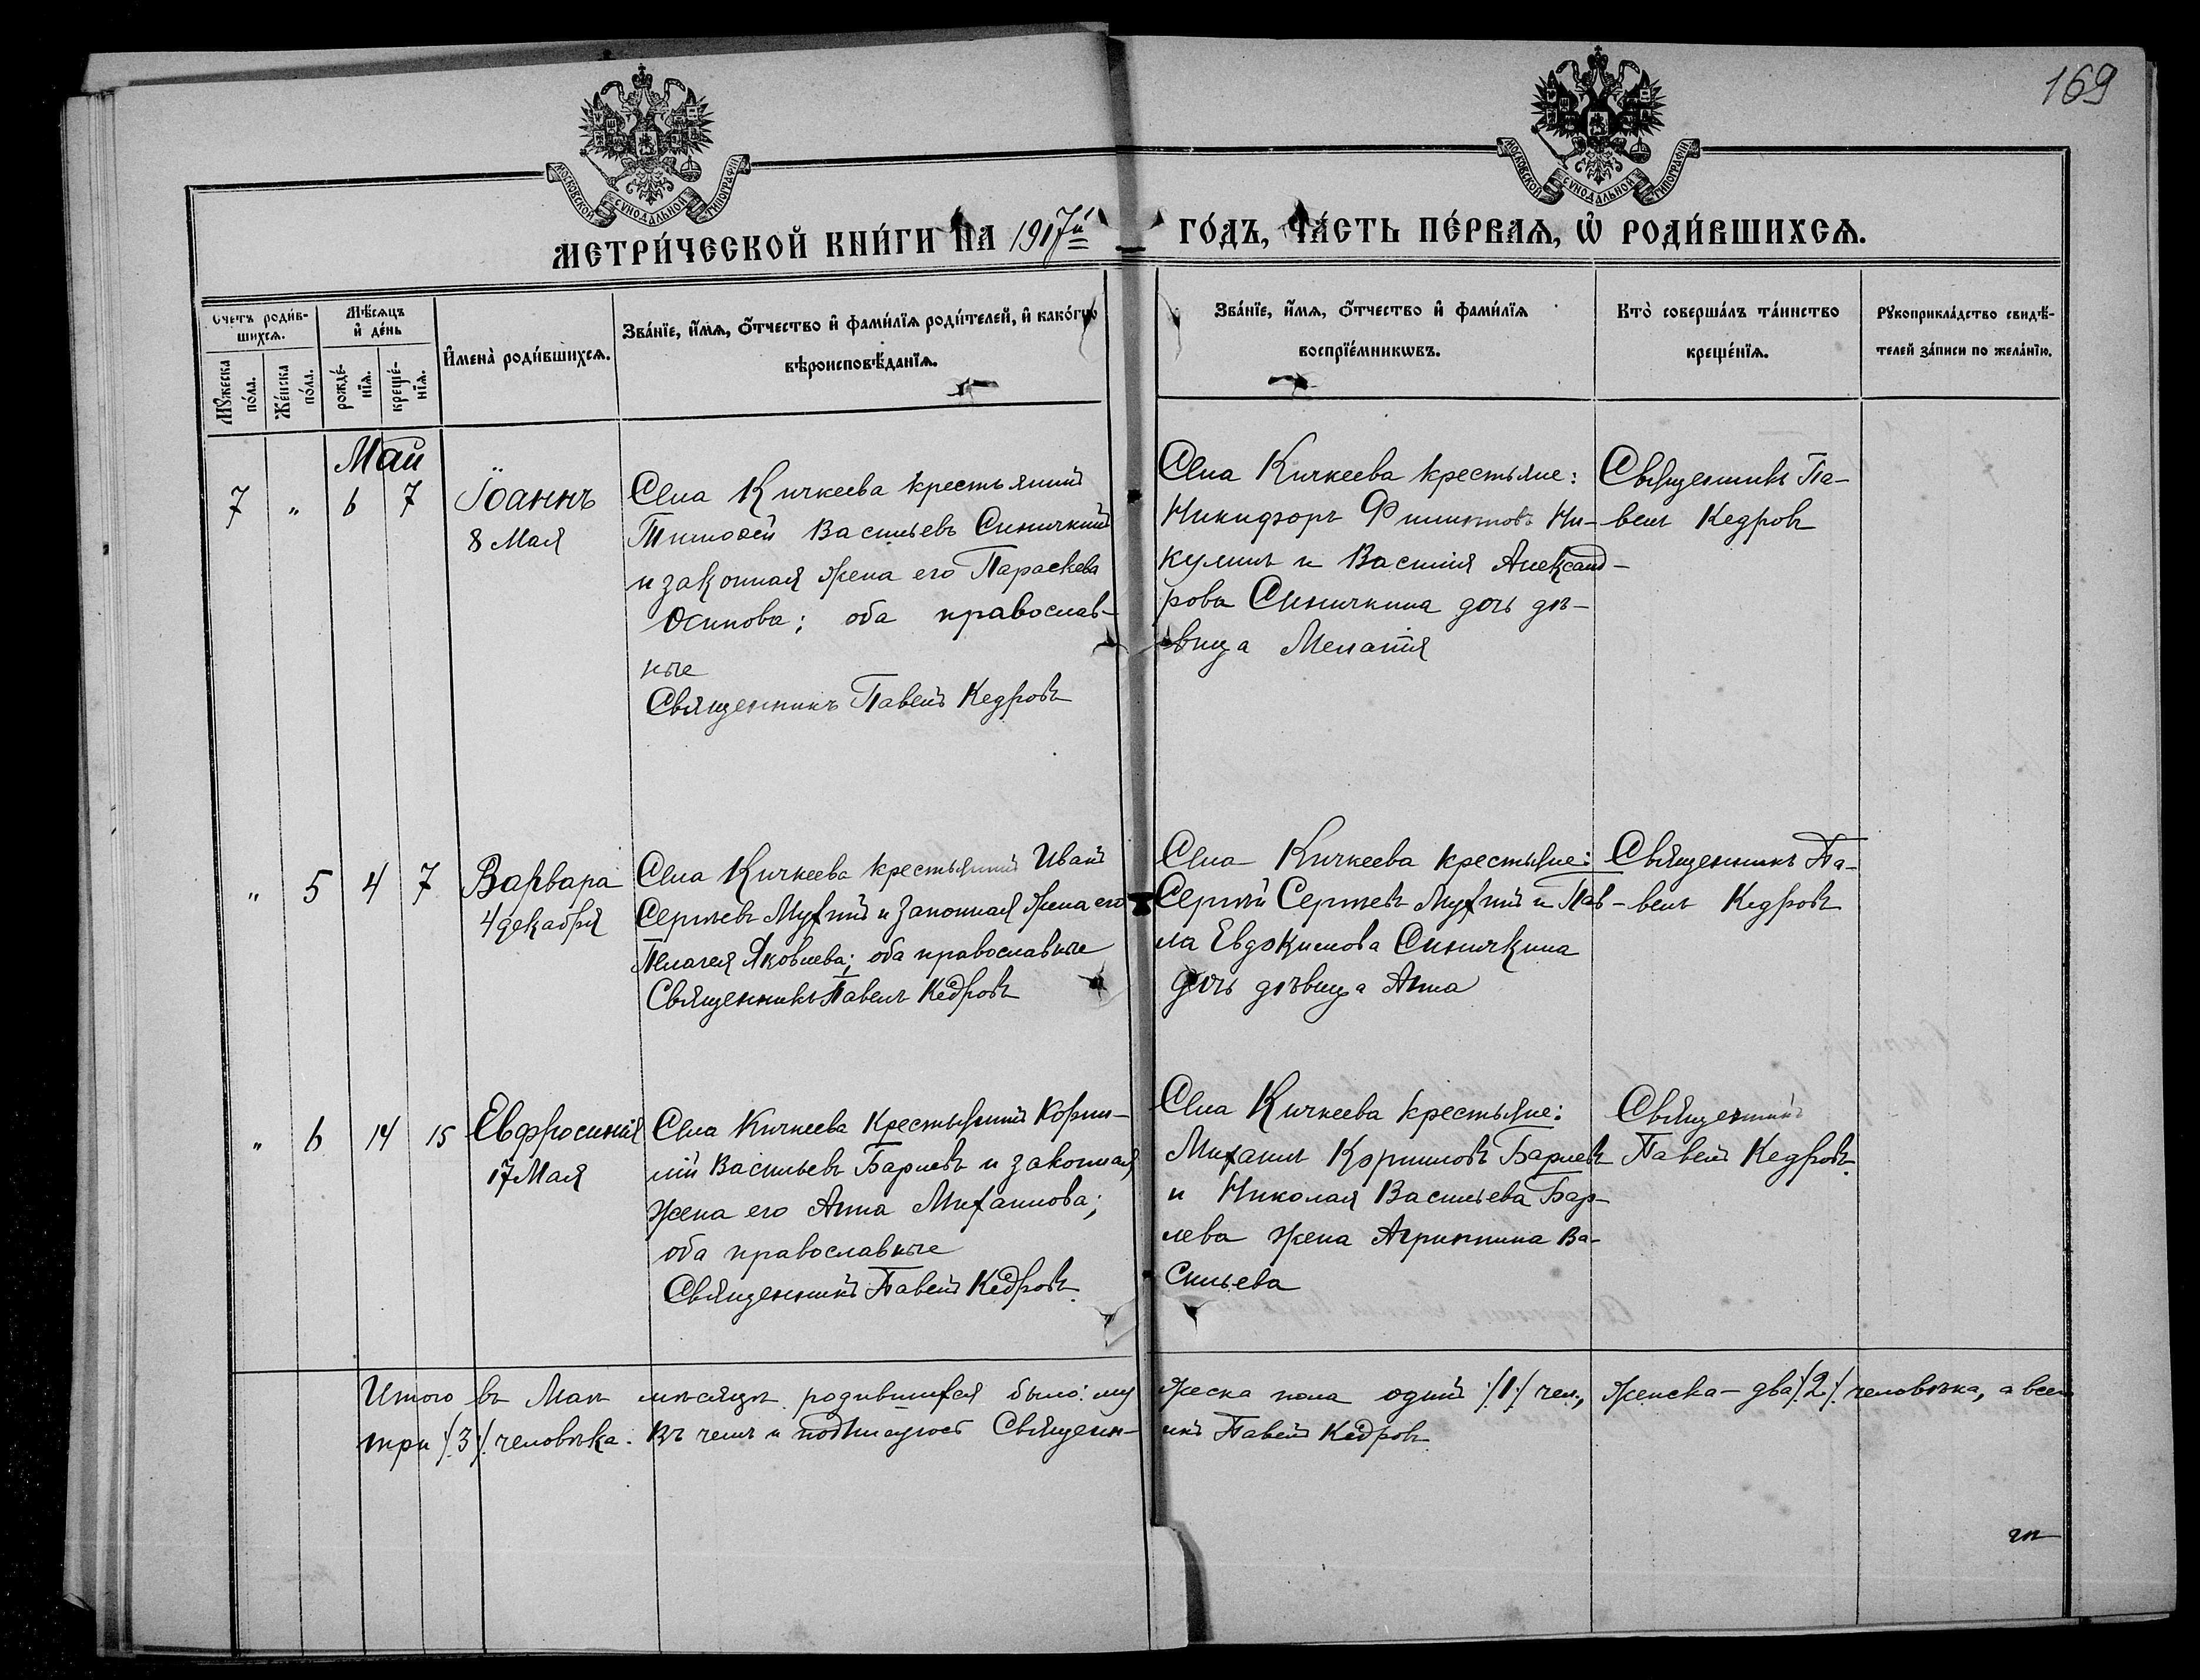 169
МОСКОВСКОЙ СУНОДАЛЬНОЙ ТИПОГРАФІИ
МОСКОВСКОЙ СУНОДАЛЬНОЙ ТИПОГРАФІИ
МЕТРИ́ЧЕСКОЙ КНИ́ГИ НА 1917й ГО́ДЪ, ЧА́СТЬ ПЕ́РВАѦ, Ѡ҆ РОДИ́ВШИХСѦ.
Счетъ роди́в-
шихсѧ.
Мꙋ́жеска
по́ла.
Же́нска
по́ла.
Мѣ́сѧцъ
и҆ де́нь
рожде́-
нїѧ.
креще́-
нїѧ.
И҆мена̀ роди́вшихсѧ.
Зва́нїе, и҆́мѧ, ѻ҆́тчество и҆ фами́лїѧ роди́телей, и҆ како́гѡ
вѣроисповѣ́данїѧ.
Зва́нїе, и҆́мѧ, ѻ҆́тчество и҆ фами́лїѧ
воспрїе́мникѡвъ.
Кто̀ соверша́лъ та́инство
креще́нїѧ.
Рꙋкоприкла́дство свидѣ́-
телей за́писи по жела́нїю.
Май
7 " 6 7
Іоаннъ
8 Мая
Села Кичкеева крестьянинъ
Тимоѳей Васильевъ Синичкинъ
и законная жена его Параскева
Осипова; оба православ-
ные
Священникъ Павелъ Кедровъ
Села Кичкеева крестьяне:
Никифоръ Филиповъ Ни-
кулинъ и Василія Александ-
рова Синичкина дочь дѣ-
вица Меланія
Священникъ Па-
велъ Кедровъ
" 5 4 7
Варвара
4 декабря
Села Кичкеева крестьянинъ Иванъ
Сергѣевъ Мухинъ и законная жена его
Пелагея Яковлева; оба православные
Священникъ Павелъ Кедровъ
Села Кичкеева крестьяне:
Сергѣй Сергѣевъ Мухинъ и Пав-
ла Евдокимова Синичкина
дочь дѣвица Анна
Священникъ Па-
велъ Кедровъ
" 6 14 15
Евфросинія
17 Мая
Села Кичкеева крестьянинъ Корни-
лій Васильевъ Барлевъ и законная
жена его Анна Михаилова;
оба православные
Священникъ Павелъ Кедровъ.
Села Кичкеева крестьяне:
Михаилъ Корниловъ Барлевъ
и Николая Васильева Бар-
лева жена Агриппина Ва-
сильева
Священникъ
Павелъ Кедровъ.
Итого въ Маѣ мѣсяцѣ родившихся было: му жеска пола одинъ /1/ чел., женска - два /2/ человѣка, а всего
три /3/ человѣка. Въ чемъ и подписуюсь Священн- икъ Павелъ Кедровъ